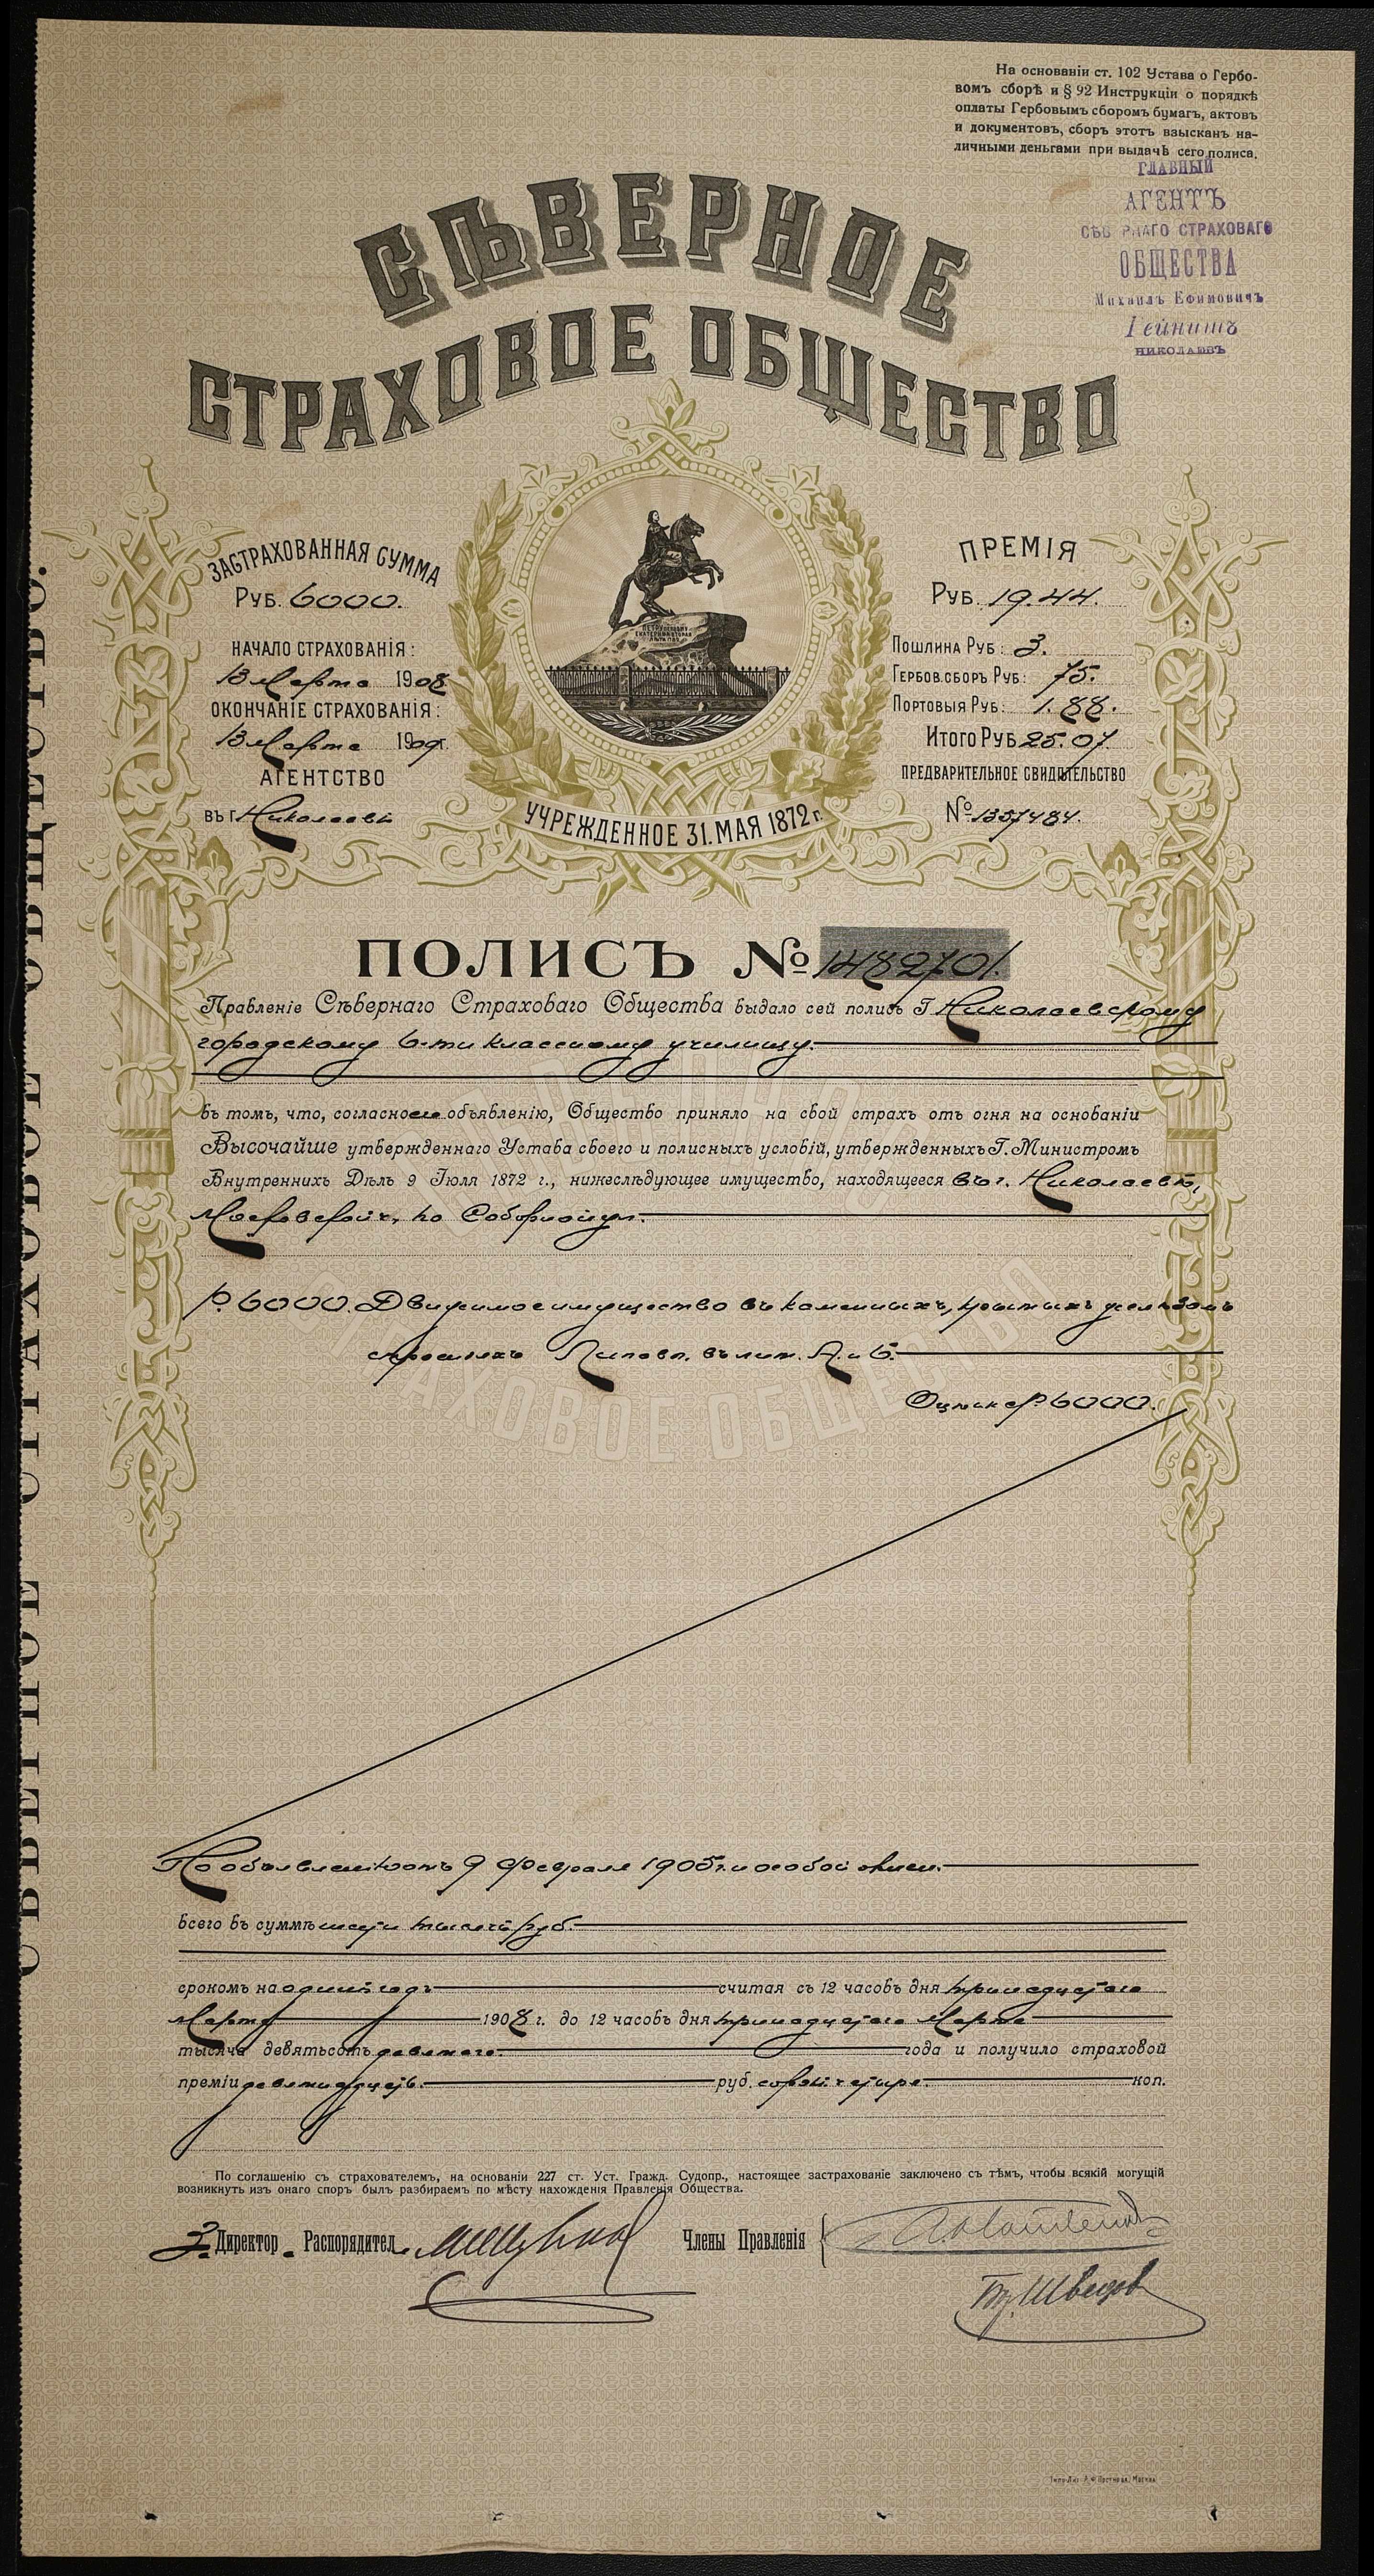 На основаніи ст. 102 Устава о Гербо-
вомъ сборѣ и § 92 Инструкціи о порядкѣ
оплаты Гербовымъ сборомъ бумагъ, актовъ
и документовъ, сборъ этотъ взысканъ на-
личными деньгами при выдачѣ сего полиса.
ГЛАВНЫЙ
АГЕНТЪ
СѢВ РНАГО СТРАХОВАГО
ОБЩЕСТВА
Михаилъ Ефимовичъ
Гейнитъ
НИКОЛАЕВЪ
СѢВЕРНОЕ
СТРАХОВОЕ ОБЩЕСТВО
ЗАСТРАХОВАННАЯ СУММА
РУБ. 6000.
НАЧАЛО СТРАХОВАНІЯ:
13 Марта 1908
ОКОНЧАНІЕ СТРАХОВАНІЯ:
13 Марта 1909г.
АГЕНТСТВО
ВЪ Г. Николаевѣ
ПЕТРУ ПЕРВОМУ
ЕКАТЕРИНА ВТОРАЯ
УЧРЕЖДЕННОЕ 31. МАЯ 1872 г.
ПРЕМІЯ
РУБ. 19.44.
ПОШЛИНА РУБ: 3.
ГЕРБОВ. СБОРЪ РУБ: 75.
ПОРТОВЫЯ РУБ: 1.88.
ИТОГО РУБ 25.07.
ПРЕДВАРИТЕЛЬНОЕ СВИДѢТЕЛЬСТВО
№ 1337484.
ПОЛИСЪ № 1482701.
Правленіе Сѣвернаго Страховаго Общества выдало сей полисъ Г Николаевскому
городскому 6-ти классному училищу.
въ томъ, что, согласно его объявленію, Общество приняло на свой страхъ отъ огня на основаніи
Высочайше утвержденнаго Устава своего и полисныхъ условій, утвержденныхъ Г. Министромъ
Внутреннихъ Дѣлъ 9 Іюля 1872 г., нижеслѣдующее имущество, находящееся въ г. Николаевѣ,
Московской ч, по Соборной ул.
Р. 6000. Движимое имущество въ каменныхъ, крытыхъ желѣзомъ
строеніяхъ въ лит. А. и Б.
Оцѣнка Р 6000.
СТРАХОВОЕ ОБЩЕСТВО
По объявленію отъ 9 февраля 1905 г. и особой описи.
всего въ суммѣ шесть тысячъ руб.
срокомъ на одинъ годъ считая съ 12 часовъ дня тринадцатаго
Марта 1908 г. до 12 часовъ дня тринадцатаго Марта
тысяча девятьсотъ девятаго года и получило страховой
преміи девятнадцать. руб. сорокъ четыре коп.
По соглашенію съ страхователемъ, на основаніи 227 ст. Уст. Гражд. Судопр., настоящее застрахованіе заключено съ тѣмъ, чтобы всякій могущій
возникнуть изъ онаго споръ былъ разбираемъ по мѣсту нахожденія Правленія Общества.
З. Директор. Распорядител.
Члены Правленія
Швецов
СѢВЕРНОЕ СТРАХОВОЕ ОБЩЕСТВО.